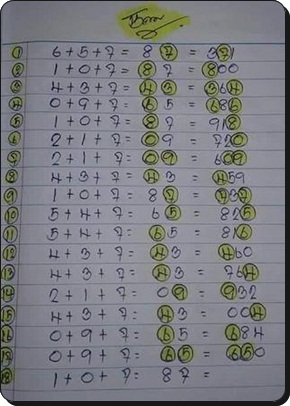 ① 6 + 5 + 7 = 8 7 = 371
② 1 + 0 + 7 = 8 7 = 800
③ 4 + 3 + 7 = 4 3 = 364
④ 0 + 9 + 7 = 6 5 = 686
⑤ 1 + 0 + 7 = 8 7 = 918
⑥ 2 + 1 + 7 = 0 9 = 720
⑦ 2 + 1 + 7 = 0 9 = 609
⑧ 4 + 3 + 7 = 4 3 = 459
⑨ 1 + 0 + 7 = 8 7 = 737
⑩ 5 + 4 + 7 = 6 5 = 825
⑪ 5 + 4 + 7 = 6 5 = 816
⑫ 4 + 3 + 7 = 4 3 = 460
⑬ 4 + 3 + 7 = 4 3 = 764
⑭ 2 + 1 + 7 = 0 9 = 932
⑮ 4 + 3 + 7 = 4 3 = 004
⑯ 0 + 9 + 7 = 6 5 = 684
⑰ 0 + 9 + 7 = 6 5 = 650
⑱ 1 + 0 + 7 = 8 7 =